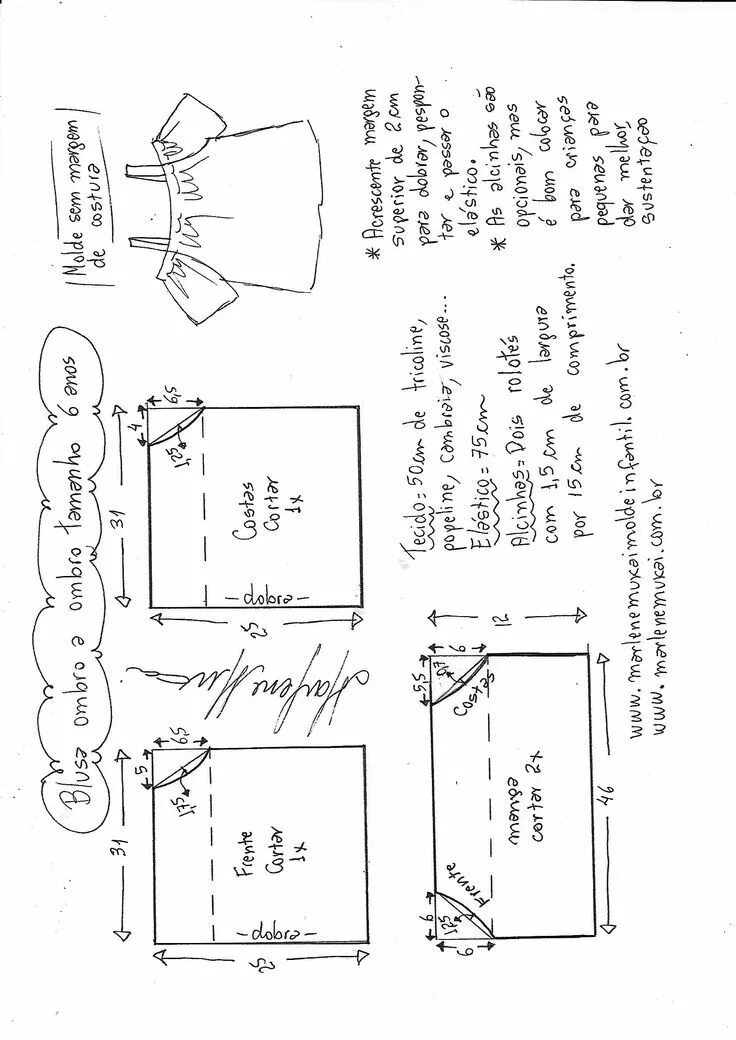 Blusa ombro a ombro tamanho 6 anos
Molde sem margem
de costura
31
5
6,5
1,75
Frente
Cortar
1x
- dobra -
25
31
4
6,5
1,25
Costas
Cortar
1x
- dobra -
25
* Acrescente margem
superior de 2cm
para dobrar, pespon-
tar e passar o
elástico.
* As alcinhas são
opcionais, mas
é bom colocar
para crianças
pequenas para
dar melhor
sustentação
6
1,25
Frente
6
5,5
0,7
Costas
6
12
manga
cortar 2x
46
Tecido = 50cm de tricoline,
popeline, cambraia, viscose...
Elástico = 75cm
Alcinhas = Dois rolotês
com 1,5cm de largura
por 15cm de comprimento.
www.marlenemukaimoldeinfantil.com.br
www.marlenemukai.com.br